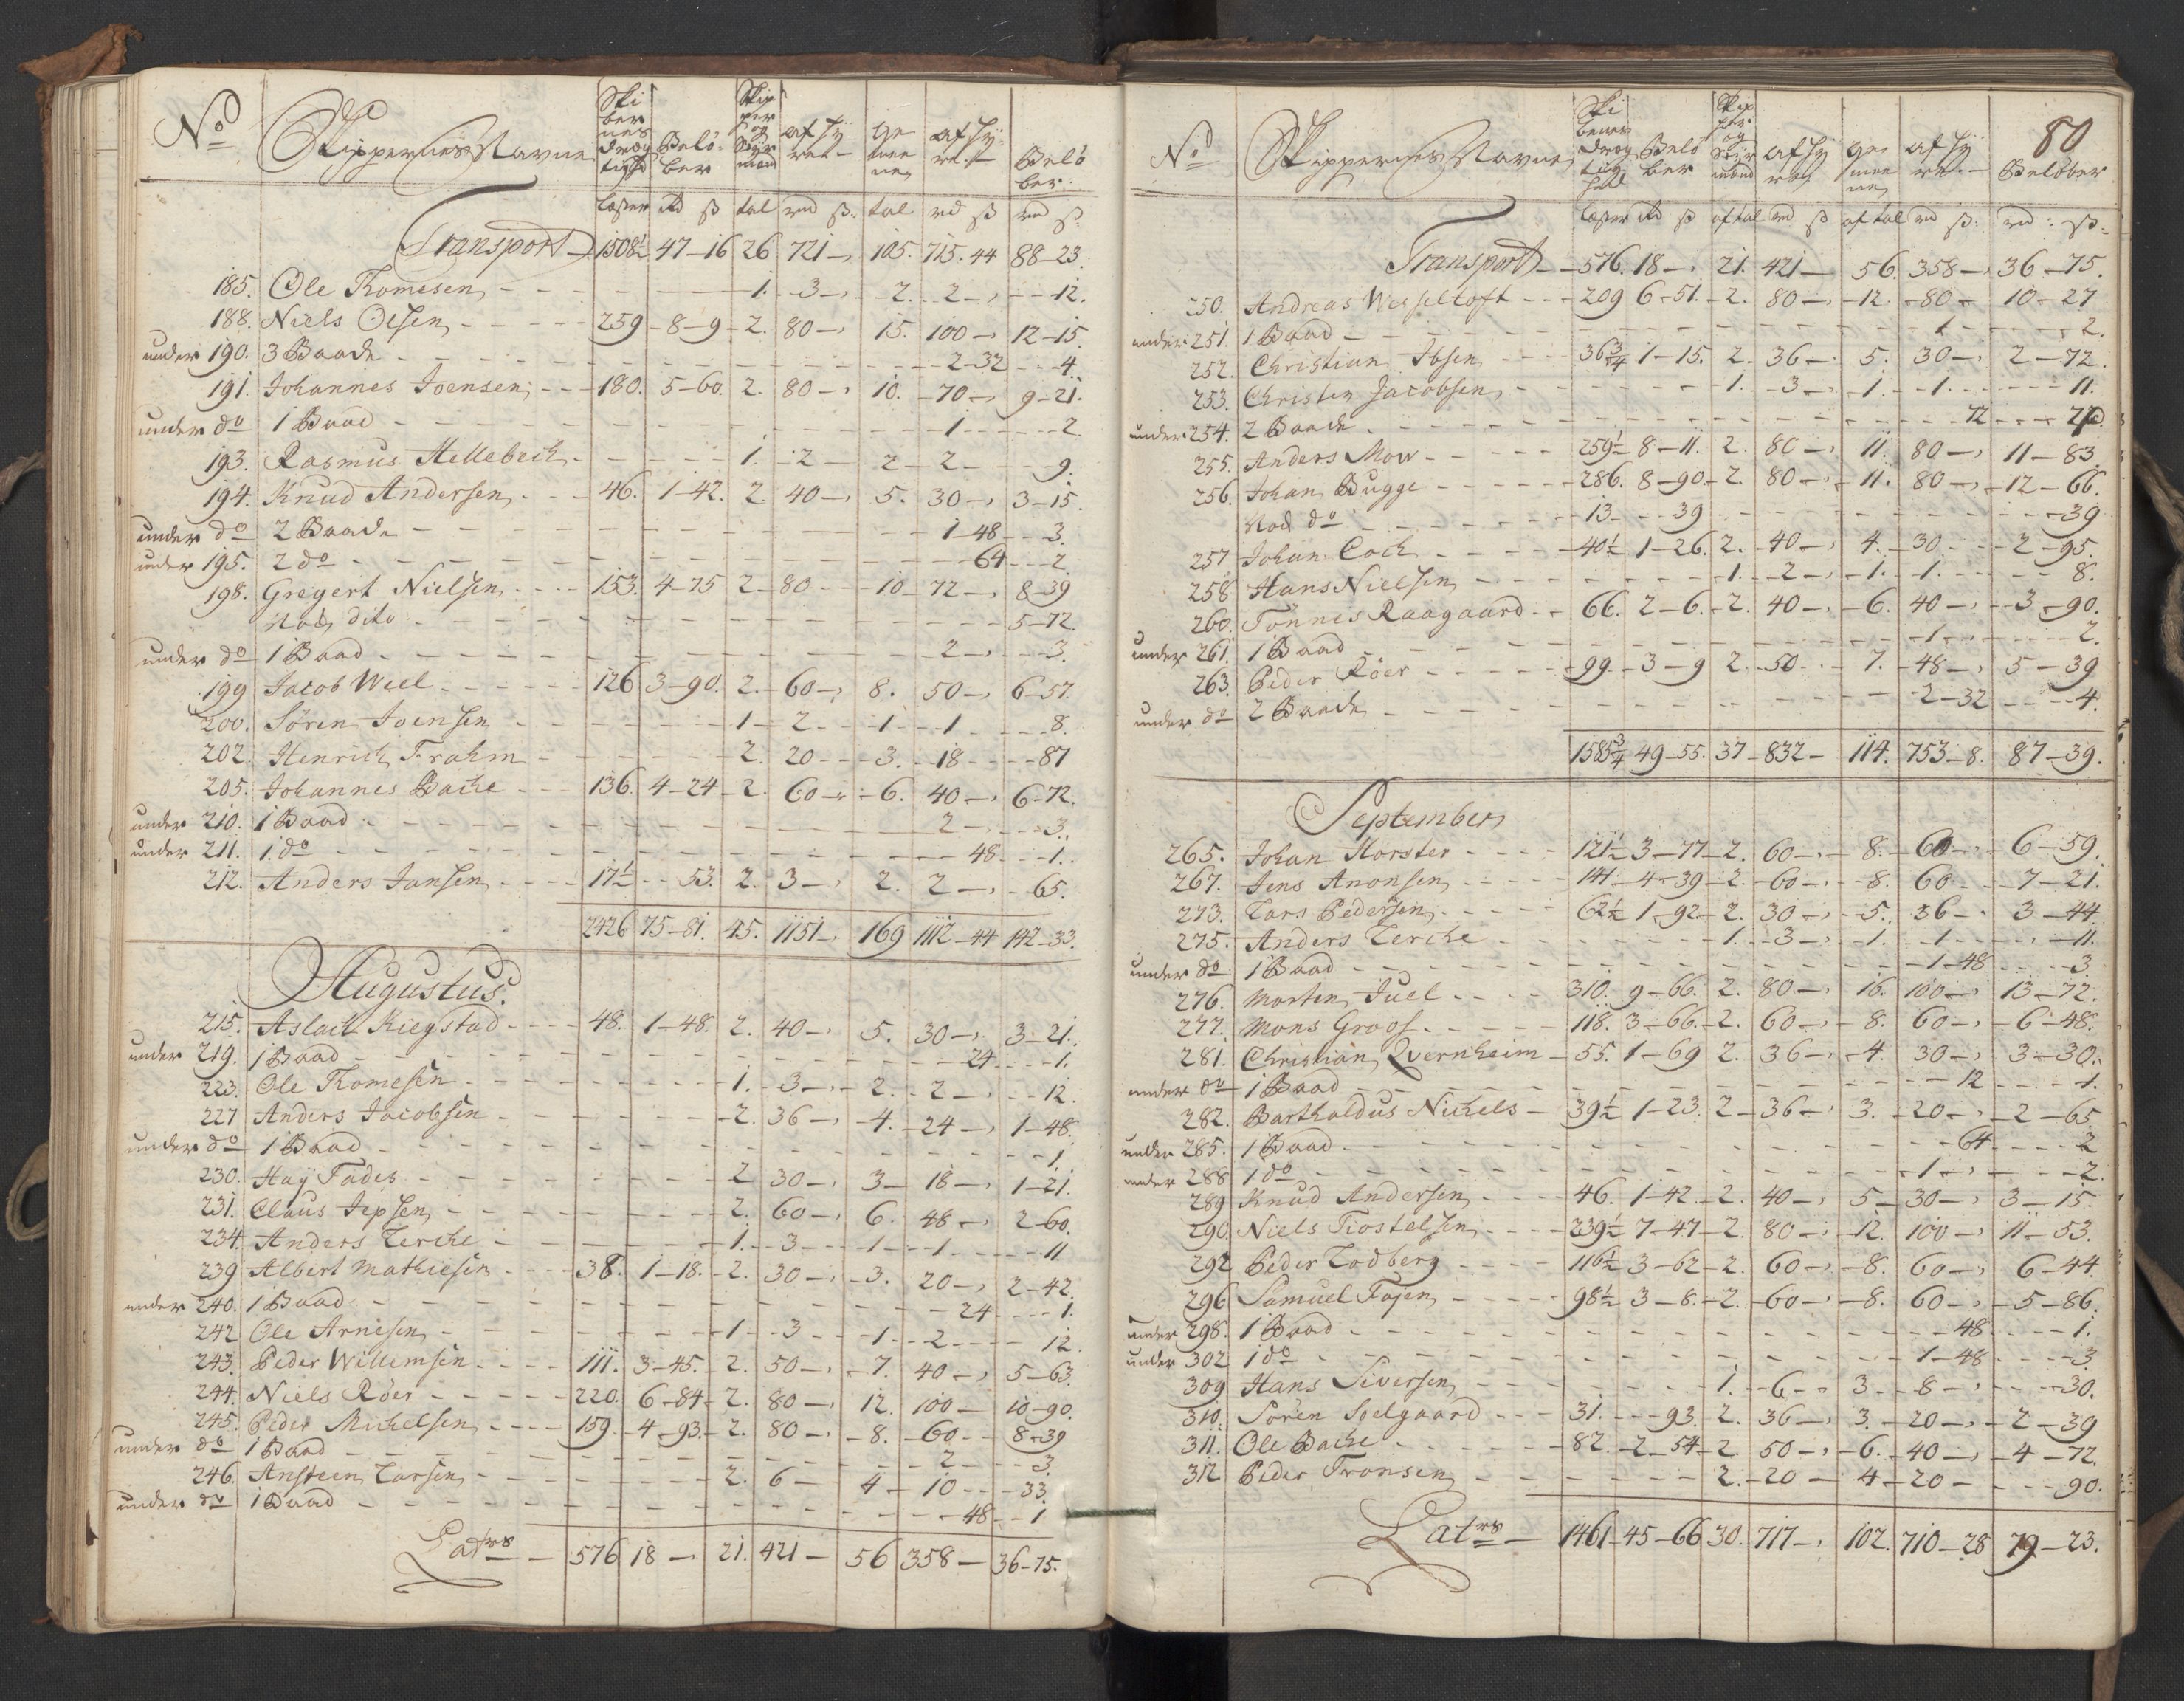 No Skippernes Navne Skibernes drægtighed Beløber Skipper og Styrmænd af hÿren gemeene af hÿren Beløber
læster rd ß tal rd ß tal rd ß rd ß
Transport 1508½ 47-16 26 721- 105. 715. 44 88-23.
185. Ole Thomesen 1. 3- 2. 2- 12.
188. Niels Olsen 259 8-9 2. 80- 15. 100- 12-15.
under 190. 3 Baade 2-32 4.
191. Johannes Joensen 180. 5-60. 2. 80- 10. 70- 9-21.
under do 1 Baad 1 2.
193. Rasmus Hellebech 1. 2 2 2 9.
194. Knud Andersen 46. 1-42. 2 40- 5. 30- 3-15.
under do 2 Baade 1-48 3.
under 195. 2 do 64 2.
198. Gregert Nielsen 153. 4-75 2 80 10 72- 8-39
Nock dito 5-72.
under do 1 Baad 2 3.
199 Jacob Weel 126 3-90. 2. 60- 8. 50- 6-57.
200. Sören Joensen 1 2 1 1 8.
202. Henrich Frahm 2. 20 3. 18 87
205. Johannes Bache 136. 4-24 2. 60- 6. 40- 6-72.
under 210. 1 Baad 2 3.
under 211. 1 do 48 1.
212. Anders Jansen 17½ 53. 2. 3- 2. 2- 65.
2426 75-81. 45. 1151- 169 1112-44 142-33.
Augustus.
215. Aslach Kiegstad 48. 1-48. 2. 40- 5. 30- 3-21.
under 219. 1 Baad 24 1.
223. Ole Thomesen 1. 3- 2. 2- 12.
227 Anders Jacobsen 2. 36- 4. 24- 1-48.
under do 1 Baad 1
230. Haÿ Fades 2 30- 3 18- 1-21.
231. Claus Jepsen 2. 60- 6. 48- 2-60.
234. Anders Lerche 1. 3 1 1 11
239 Albert Mathiesen 38. 1-18. 2. 30- 3. 20- 2-42.
under 240. 1 Baad 24 1.
242 Ole Arnesen 1 3 1 2 12.
243. Peder Willemsen 111. 3-45. 2. 50- 7. 40- 5-63.
244. Niels Röer 220. 6-84 2. 80- 12. 100- 10-90.
245. Peder Michelsen 159. 4-93 2. 80- 8. 60 8-39
under do 1 Baad 2 3.
246. Ansteen Larsen 2. 6- 4 10 33.
under do 1 Baad 48 1
Latus 576 18- 21. 421- 56 358- 36-75.
80
No Skippernes Navne Skibenes drægtighed Beløber Skipper og Styrmænd af hÿren gemeene af hÿren Beløber
læster rd ß af tal rd ß af tal rd ß rd ß
Transport 576. 18- 21. 421- 56. 358- 36-75.
250. Andreas Wesseltoft 209 6-51. 2. 80- 12. 80- 10-27
under 251. 1 Baad 1 2.
252. Christian Ibsen 36¾ 1-15. 2. 36- 5. 30- 2-72.
253. Christen Jacobsen 1. 3- 1. 1. 11.
under 254. 2 Baade 72
255. Anders Mow 259½ 8-11. 2. 80- 11. 80- 11-83.
256. Johan Bugge 286. 8-90 2. 80- 11. 80- 12-66.
Nock do 13 39 39
257 Johan Coch 40½ 1-26. 2. 40- 4. 30 2-95.
258 Hans Nielsen 1. 2- 1. 1. 8.
260. Tönnes Raagaard 66. 2-6. 2. 40- 6. 40- 3-90.
under 261. 1 Baad 1 2.
263. Peder Röer 99 3-9 2. 50 7. 48- 5-39
under do 2 Baade 2-32 4.
1585¾ 49-55. 37 832- 114. 753-8. 87-39.
September
265. Johan Horster 121½ 3-77 2. 60- 8. 60- 6-59.
267. Jens Anonsen 141 4-39 2. 60- 8. 60 7-21.
273. Lars Pedersen 62½ 1-92 2. 30- 5. 36- 3-44.
275. Anders Lerche 1. 3- 1. 1 11.
under do 1 Baad 1-48 3
276. Morten Juel 310. 9-66. 2. 80- 16. 100- 13-72.
277. Mons Groof 118. 3-66. 2. 60- 8. 60- 6-48.
281. Christian Qvernheim 55. 1-69 2. 36- 4. 30- 3-30.
under do 1 Baad 12 1.
282. Bartholdus Nichels 39½ 1-23. 2 36- 3. 20- 2-65.
under 285. 1 Baad 64 2
under 288 1 do 1 2.
289 Knud Andersen 46. 1-42 2. 40- 5 30- 3-15.
290. Niels Tiostelsen 239½ 7-47 2. 80- 12. 100- 11-53.
292 Peder Lodberg 116½ 3-62 2. 60- 8. 60- 6-44.
296 Samuel Fojen 98½ 3-8. 2. 60- 8. 60- 5-86.
under 298. 1 Baad 48 1.
under 302 1 do 1-48 3.
309 Hans Siversen 1. 6 3 8- 30.
310. Sören Soelgaard 31. 93. 2. 36- 3. 20- 2-39
311. Ole Bache 82. 2-54 2. 50- 6. 40- 4-72.
312 Peder Tronsen 2. 20- 4 20 90.
Latus 1461 45-66 30. 717- 102. 710-28 79-23.